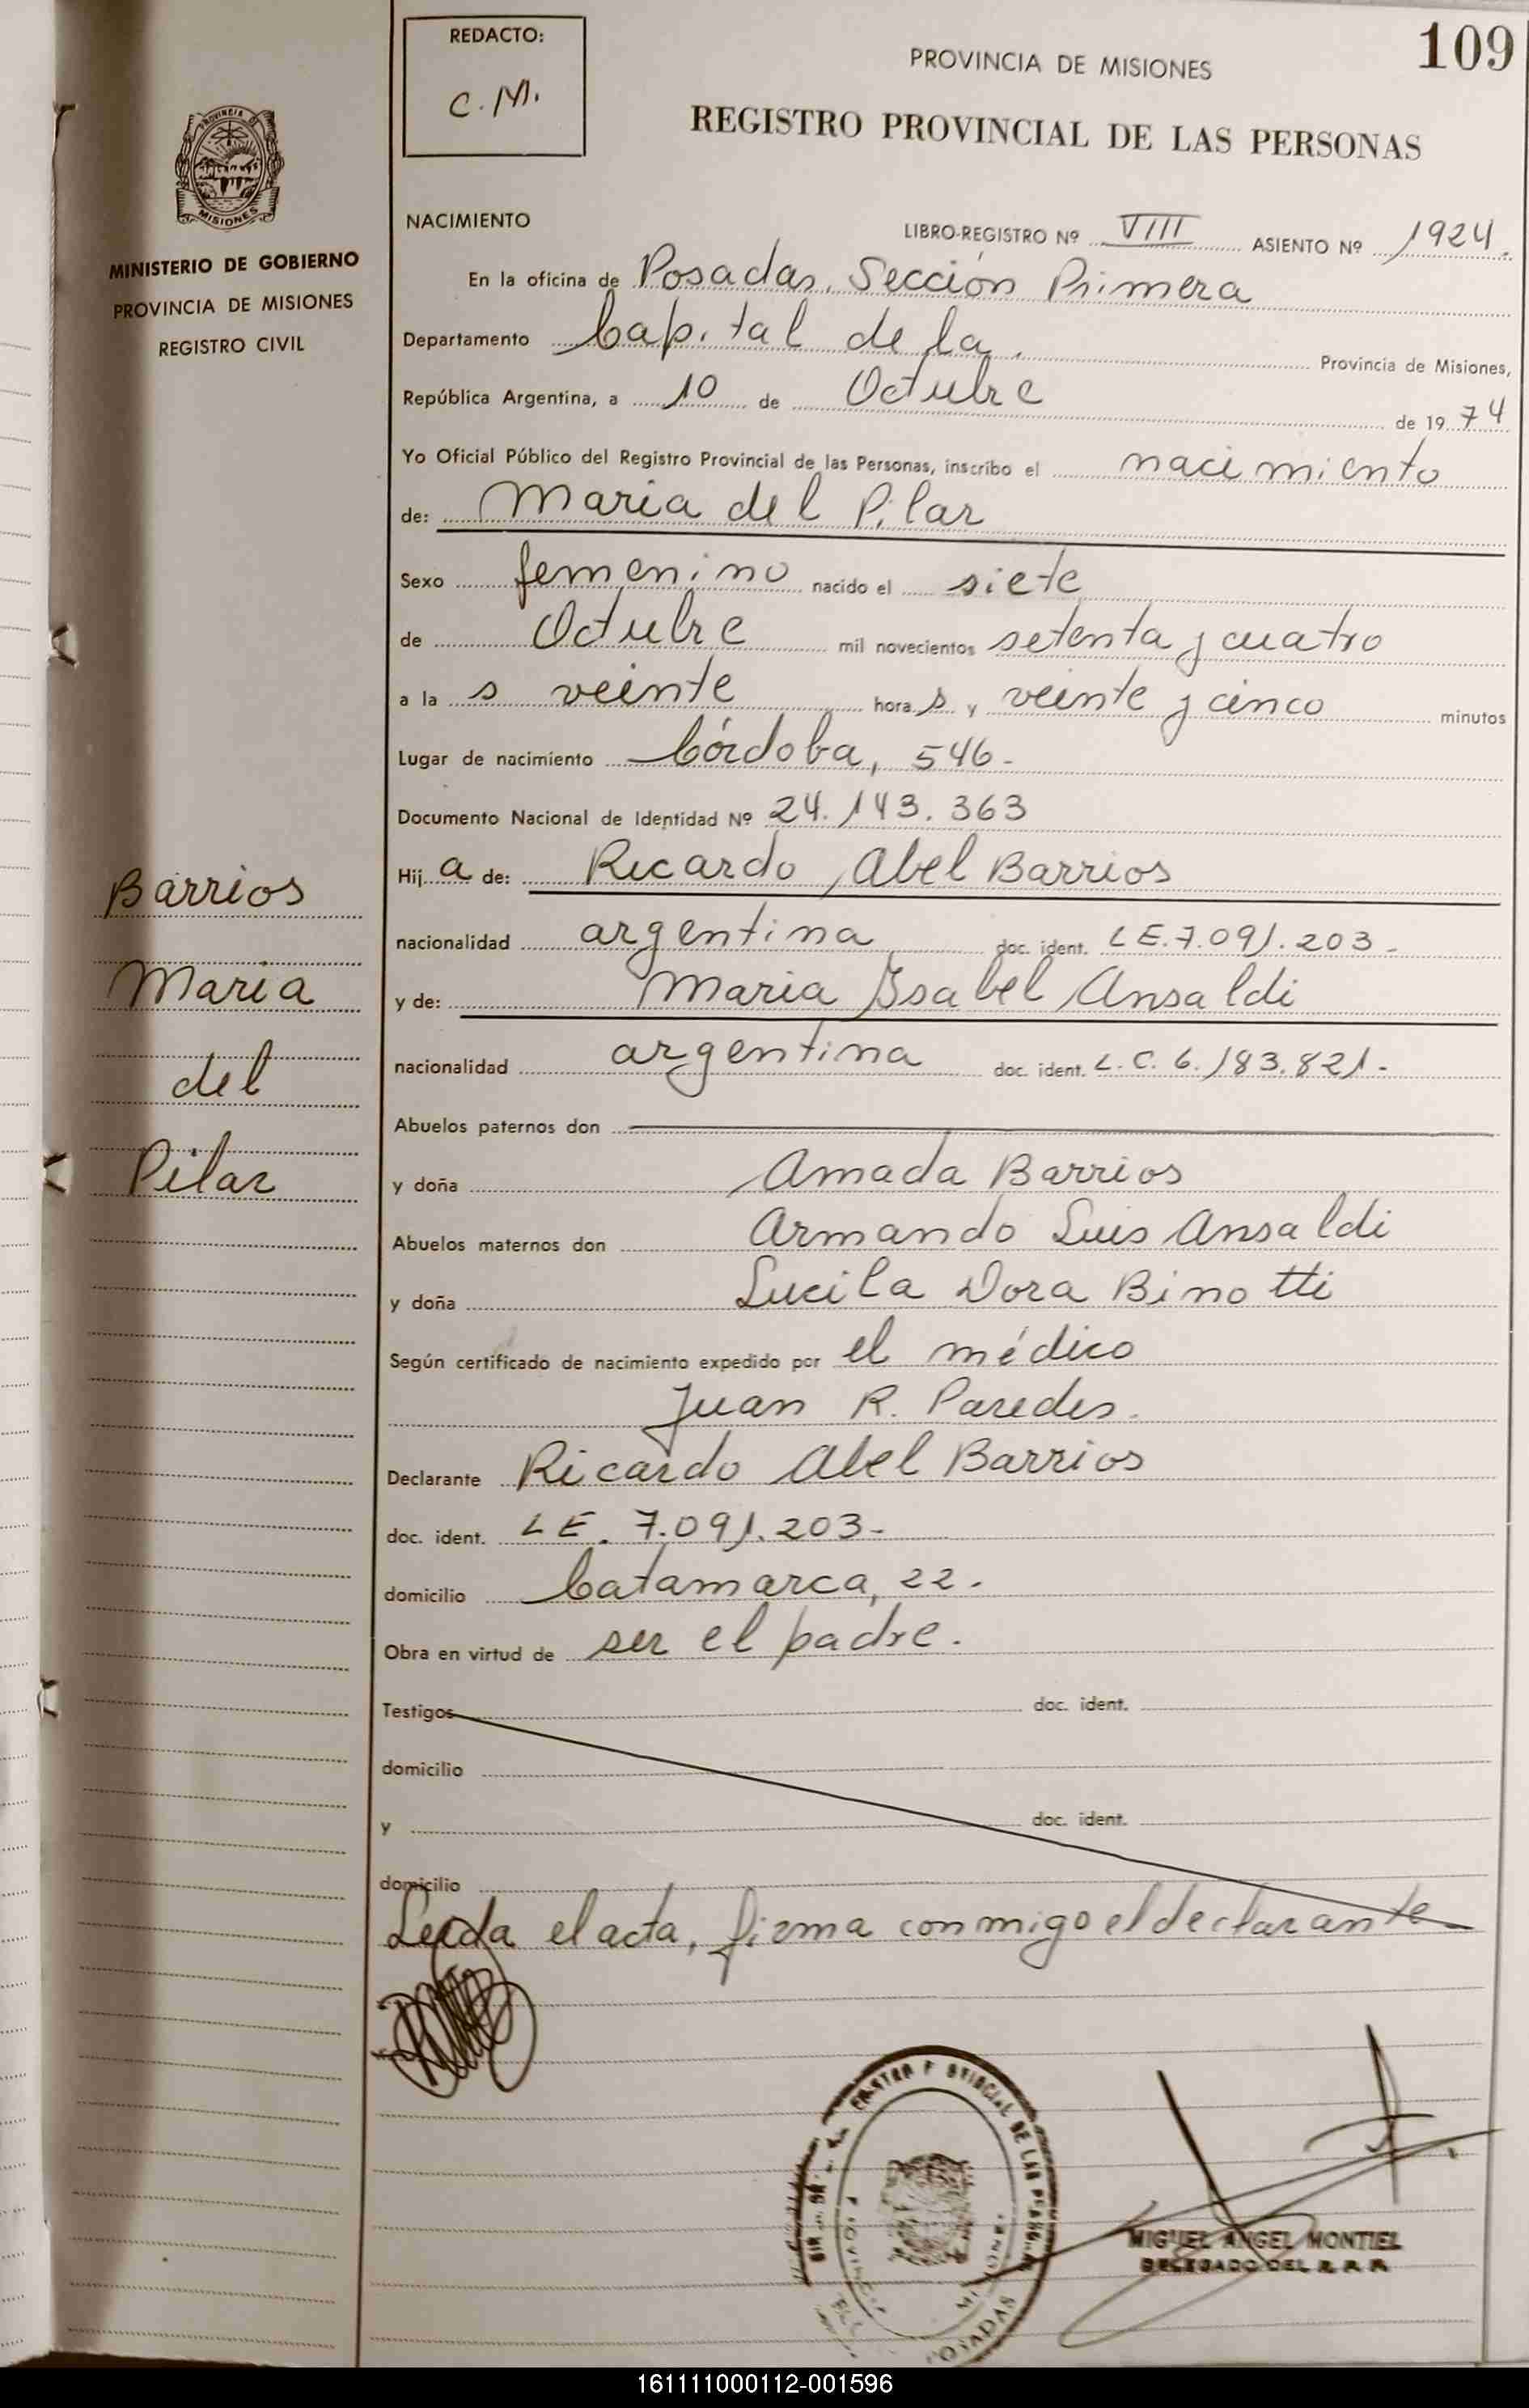 109
REDACTO:
C.M.
PROVINCIA DE MISIONES
REGISTRO PROVINCIAL DE LAS PERSONAS
PROVINCIA DE
MISIONES
MINISTERIO DE GOBIERNO
PROVINCIA DE MISIONES
REGISTRO CIVIL
NACIMIENTO
LIBRO-REGISTRO Nº VIII ASIENTO Nº 1924.
En la oficina de Posadas, Sección Primera
Departamento Capital de la. Provincia de Misiones,
República Argentina, a 10 de Octubre de 1974
Yo Oficial Público del Registro Provincial de las Personas, inscribo el nacimiento
de: Maria del Pilar
Sexo femenino nacido el siete
de Octubre mil novecientos setenta y cuatro
a la s veinte hora s y veinte y cinco minutos
Lugar de nacimiento Córdoba, 546-
Documento Nacional de Identidad Nº 24.143.363
Hij a de: Ricardo Abel Barrios
nacionalidad argentina doc. ident. LE.7.091.203-
y de: Maria Ysabel Ansaldi
nacionalidad argentina doc. ident. L.C. 6.183.821-
Abuelos paternos don
y doña Amada Barrios
Abuelos maternos don Armando Luis Ansaldi
y doña Lucila Dora Binotti
Según certificado de nacimiento expedido por el médico
Juan R. Paredes.
Declarante Ricardo Abel Barrios
doc. ident. LE. 7.091.203-
domicilio Catamarca, 22.
Obra en virtud de ser el padre.
Testigos doc. ident.
domicilio
y doc. ident.
domicilio
Leida el acta, firma conmigo el declarante
Barrios
Maria
del
Pilar
POSADAS
MIGUEL ANGEL MONTIEL
DELEGADO DEL R. P. P.
161111000112-001596